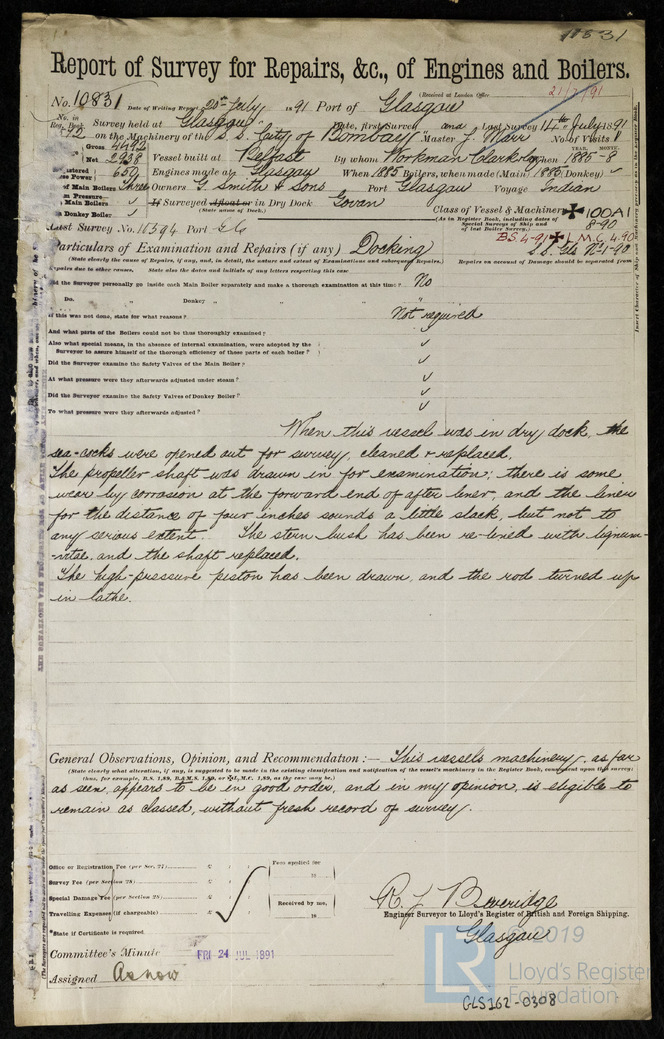 10831
Report of Survey for Repairs, &c., of Engines and Boilers.
(Received at London Office 21/7/91
No. 10831 Date of Writing Report 20th July 1891 Port of Glasgow
No. in Reg. Book Survey held at Glasgow Date, first Survey and Last Survey 14th July 1891
on the Machinery of the S. S. "City of Bombay" Master J. Marr No. of Visits
Gross 4492
Net 2938 Vessel built at Belfast By whom Workman Clark & Co When 1885-8
YEAR. MONTH.
650 Engines made at Glasgow When 1885 Boilers, when made (Main) 1885 (Donkey) ✓
of Main Boilers Three Owners G. Smith & Sons Port Glasgow Voyage Indian
Main Boilers ✓ If Surveyed Afloat or in Dry Dock Govan
(State name of Dock.)
Donkey Boiler ✓
Class of Vessel & Machinery ✠ 100A1
(As in Register Book, including dates of Special Surveys of Ship and of last Boiler Survey.)
8-90
Last Survey No. 10394 Port
B.S. 4-91 ✠ L.M.C. 4.90
S.S. Gls No1-90
Particulars of Examination and Repairs (if any) Docking
(State clearly the cause of Repairs, if any, and, in detail, the nature and extent of Examinations and subsequent Repairs.)
Repairs on account of Damage should be separated from
Repairs due to other causes. State also the dates and initials of any letters respecting this case
Did the Surveyor personally go inside each Main Boiler separately and make a thorough examination at this time? No
Do. " Donkey " " " "
If this was not done, state for what reasons? Not required
And what parts of the Boilers could not be thus thoroughly examined? ✓
Also what special means, in the absence of internal examination, were adopted by the
Surveyor to assure himself of the thorough efficiency of those parts of each boiler? ✓
Did the Surveyor examine the Safety Valves of the Main Boiler? ✓
At what pressure were they afterwards adjusted under steam? ✓
Did the Surveyor examine the Safety Valves of Donkey Boiler? ✓
To what pressure were they afterwards adjusted? ✓
When this vessel was in dry dock, the
sea-cocks were opened out for survey, cleaned & replaced.
The propeller shaft was drawn in for examination; there is some
wear by corrosion at the forward end of after liner, and the liner
for the distance of four inches sounds a little slack, but not to
any serious extent. The stern bush has been re-lined with lignum-
-vitae, and the shaft replaced.
The high-pressure piston has been drawn, and the rod turned up
in lathe.
General Observations, Opinion, and Recommendation:— This vessels machinery, as far
(State clearly what alteration, if any, is suggested to be made in the existing classification and notification of the vessel's machinery in the Register Book, consequent upon this survey;
thus, for example, B.S. 1,89, B.&M.S. 1,89, or ✠L.M.C. 1,89, as the case may be.)
as seen, appears to be in good order, and in my opinion, is eligible to
remain as classed, without fresh record of survey.
Office or Registration Fee (per Sec. 27)
Survey Fee (per Section 28)
Special Damage Fee (per Section 28)
Travelling Expenses (if chargeable)
Fees applied for
18
Received by me,
18
*State if Certificate is required
R. J. Beveridge
Engineer Surveyor to Lloyd's Register of British and Foreign Shipping.
Glasgow
Committee's Minute FRI 24 JUL 1891
Assigned As now
© 2019
LR
Lloyd's Register
Foundation
GLS162-0308